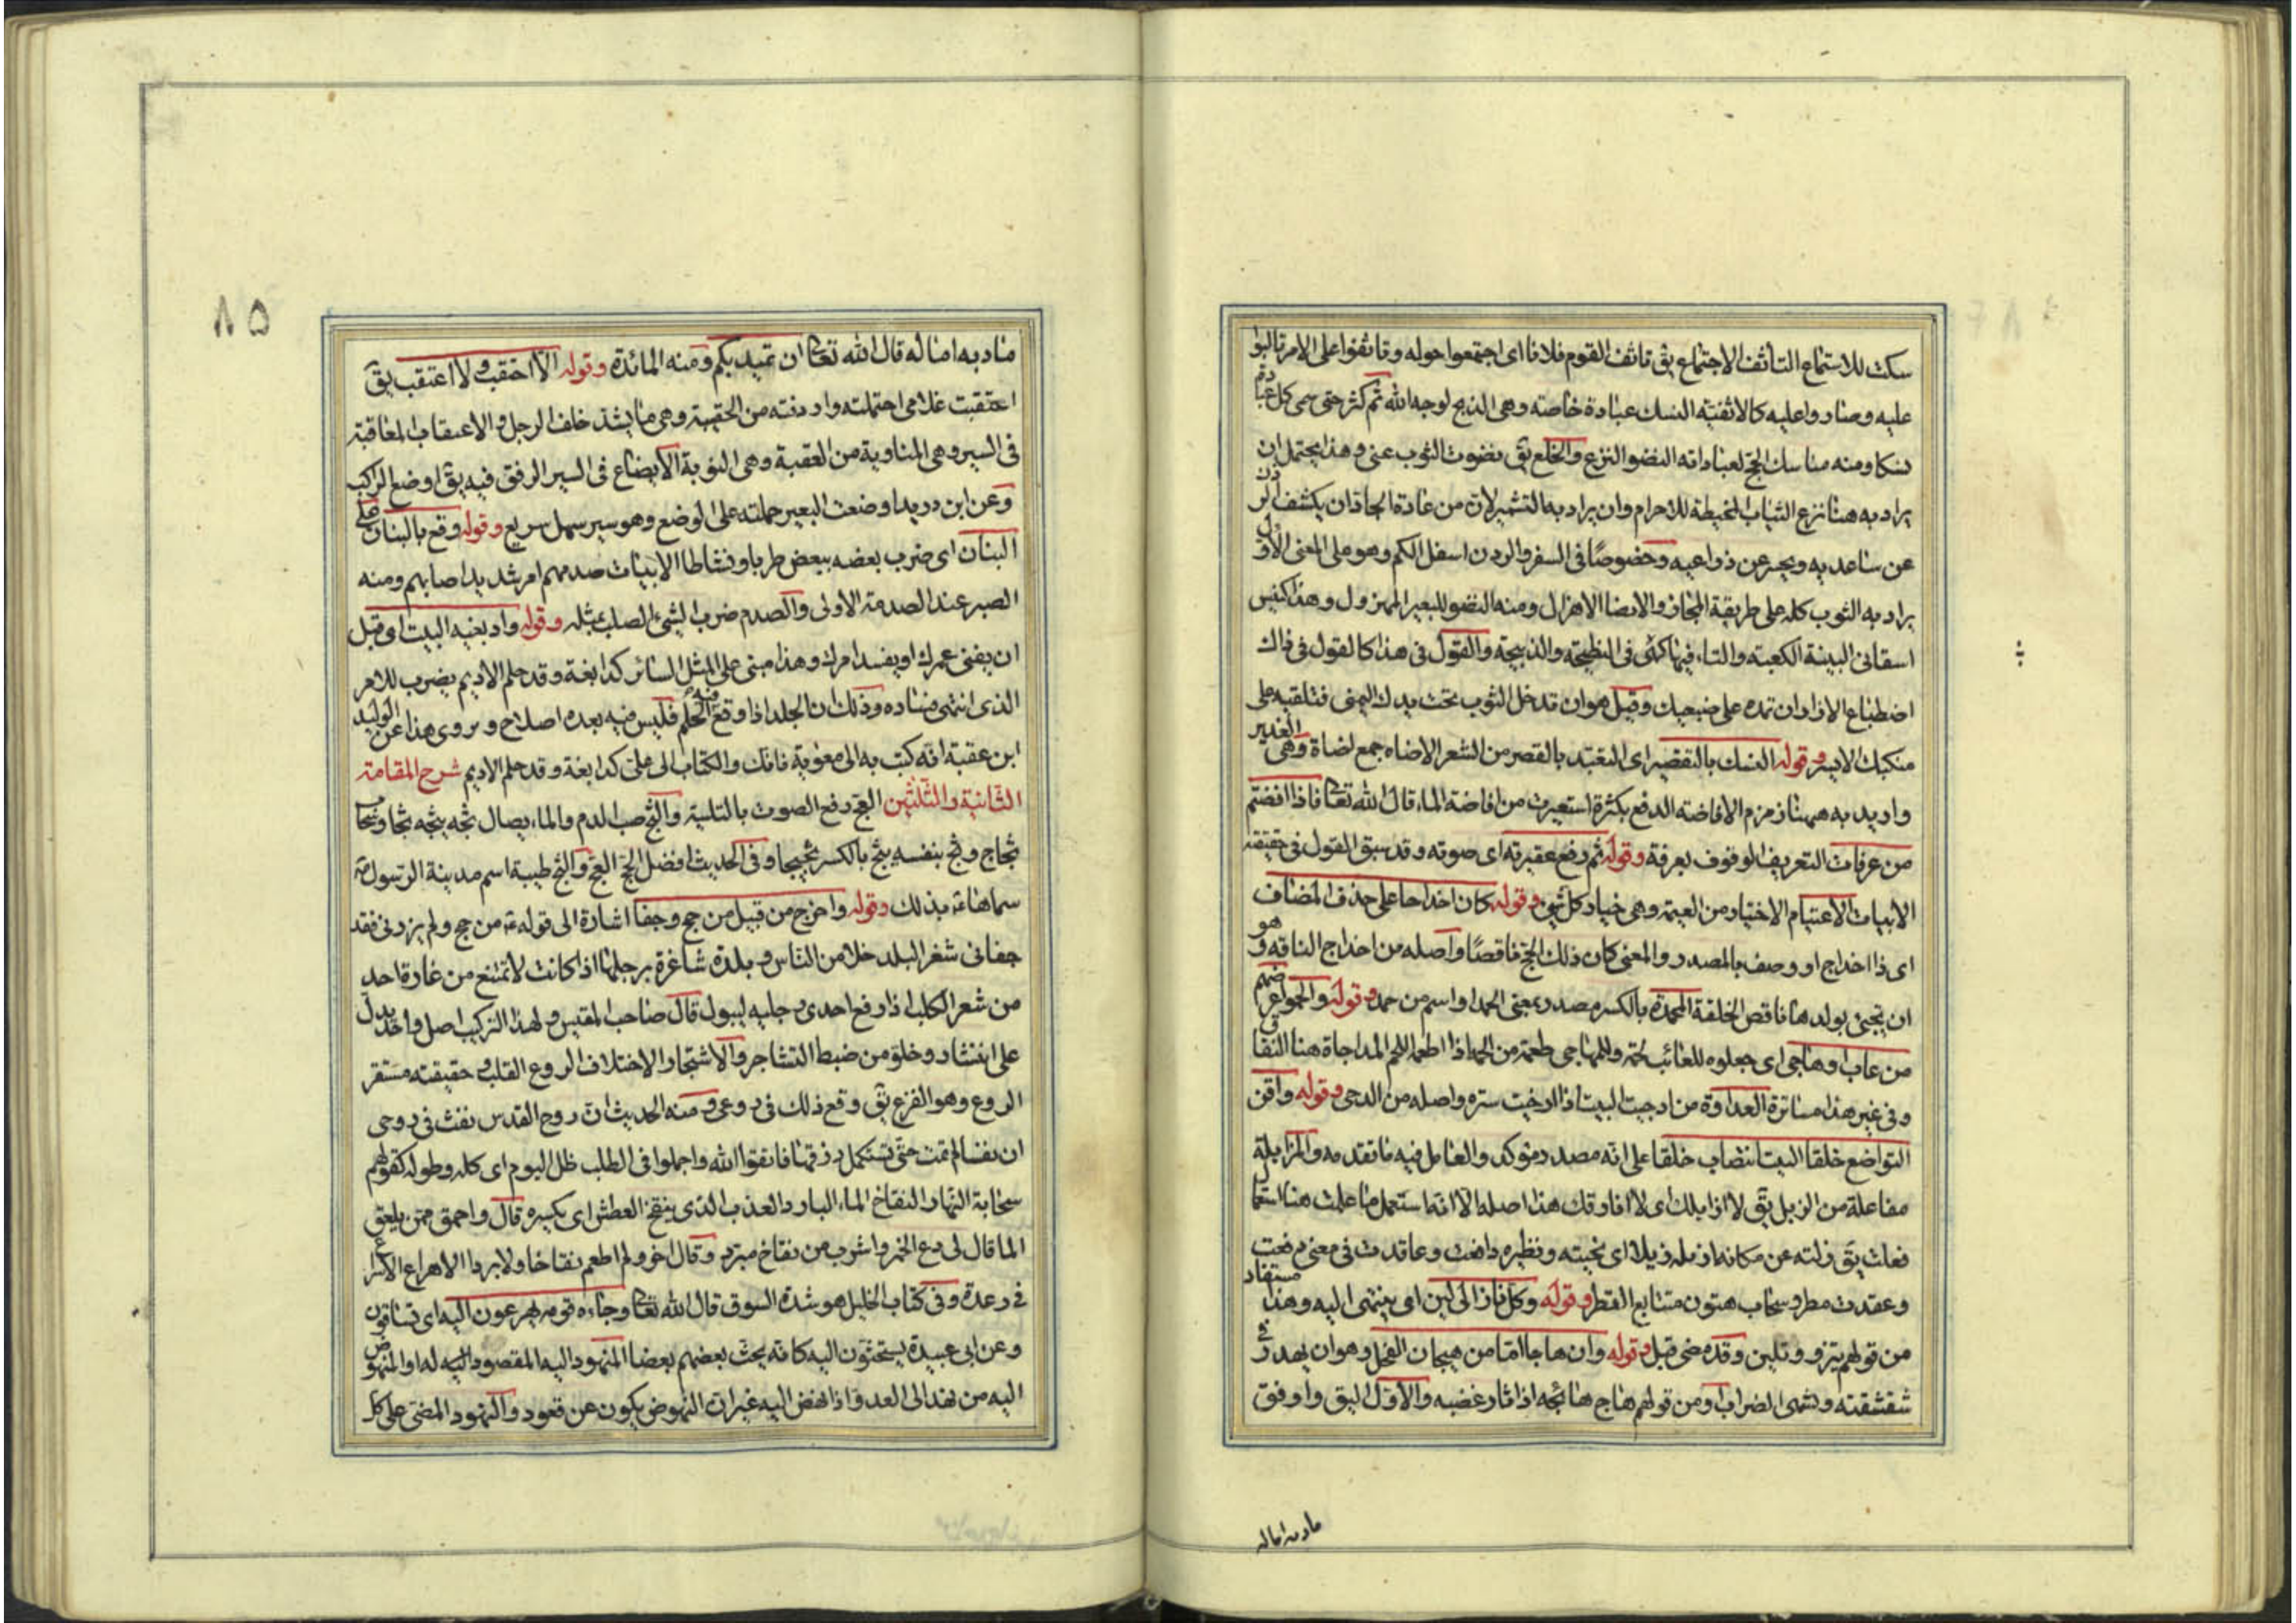 سكت للاستماع التأثف الاجتماع يق تاثف القوم فلانا اى اجتمعوا حوله وتاثفوا على الامر تالبوا
عليه وصاروا عليه كالاثفية النسك عبادة خاصته وهى الذبح لوجه الله ثم كثر حتى سمى كل عبادة
نسكا ومنه مناسك الحج لعباداته النضو النزع والخلع يق نضوت الثوب عنى وهذا يحتمل ان
يراد به هنا نزع الثياب المخيطة للاحرام وان يراد به التشمير لان من عادة الجاد ان يكشف الردن
عن ساعديه ويحسر عن ذراعيه وخصوصًا فى السفر والردن اسفل الكم وهو على المعنى الاول
يراد به الثوب كله على طريقة المجاز والانضا الاهزال ومنه النضو للبعير المهزول وهذا كنفيس
اسقانى البينة الكعبته والتاء فيها كهى فى النطيحته والذبيحة والقول فى هذا كالقول فى ذاك
اضطباع الازار ان تمده على ضبعيك وقيل هو ان تدخل الثوب تحت يدك اليمنى فتلقيه على
منكبك الايسر وقوله النسك بالتقصير اى التعبد بالقصر من الشعر الاضاه جمع اضاة وهى الغدير
واريد به ههنا زمزم الافاضه الدفع بكثرة استعيرت من افاضة الماء قال الله تعالى فاذا افضتم
من عرفات التعريف الوقوف بعرفة وقوله ثم رفع عقيرته اى صوته وقد سبق القول فى حقيقته
الابيات الاعتيام الاختيار من العيمة وهى خيار كل شئ وقوله كان اخداجا على حذف المضاف
اى ذا اخداج او وصف بالمصدر والمعنى كان ذلك الحج ناقصًا واصله من اخداج الناقه وهو
ان تجئ بولدها ناقص الخلقة المحمدة بالكسر مصدر بمعنى الحمد او اسم من حمد وقوله والحموا عرضهم
من عاب وهاجى اى جعلوه للعائب لحمة وللمهاجى طعمة من الحمه اذا اطعمه اللحم المداجاة هنا النفاق
وفى غير هذا مساترة العداوة من ادجيت البيت اذا ارخيت ستره واصله من الدجى وقوله واقن
التواضع خلقا البيت انتصاب خلقا على انه مصدر مؤكد والعامل فيه ما تقدمه والمزايلة
مفاعلة من الزيل يق لا ازايلك اى لا افارقك هذا اصله الا انه استعمل فاعلت هنا استعمال
فعلت يق زلته عن مكانه ازيله زيلا اى نحيته ونظيره دافعت وعاقدت فى معنى دفعت
وعقدت مطر وسحاب هتون متتابع القطر وقوله وكل نازالى لين اى ينتهى اليه وهذا مستفاد
من قولهم ينزو وتلين وقد مضى قبل وقوله وان هاجا امّا من هيجان الفحل وهو ان يهدر فى
شقشقته وشهى الضراب او من قولهم هاج هائجه اذا ثار غضبه والاول اليق واوفق
ماد به اماله
٨٥
ماد به اماله قال الله تعالى ان تميد بكم ومنه المائدة وقوله الا احتقب ولا اعتقب يق
احتقبت غلامى احتملته واردفته من الحقيبة وهى ما يشد خلف الرحل والاعتقاب المعاقبة
فى السير وهى المناوبة من العقبة وهى النوبة الايضاع فى السير الرفق فيه يق اوضع الراكب
وعن ابن دريد اوضعت البعير حملته على الوضع وهو سير سهل سريع وقوله وقع بالبنان على
البنان اى ضرب بعضه ببعض طربا ونشاطا الابيات صدمهم امر شديد اصابهم ومنه
الصبر عند الصدمة الاولى والصدم ضرب الشئ الصلب بمثله وقوله وادبغيه البيت اى قبل
ان يفنى عمرك او يفسد امرك وهذا مبنى على المثل السائر كدابغة وقد حلم الاديم يضرب للامر
الذى انتهى فساده وذلك ان الجلد اذا وقع فيه الحلم فليس فيه بعده اصلاح ويروى هذا عن الوليد
ابن عقبة انه كتب به الى معوية فانك والكتاب الى على كدابغة وقد حلم الاديم شرح المقامة
الثانية والثلثين العج رفع الصوت بالتلبية والثج صب الدم والماء يصال ثجه يثجه ثجا وسحاب
ثجاج وثج بنفسه يثج بالكسر ثجيجا وفى الحديث افضل الحج العج والثج طيبة اسم مدينة الرسول
سماها بذلك وقوله واخرج من قبيل من حج وجفا اشارة الى قوله من حج ولم يزرنى فقد
جفانى شغر البلد خلا من الناس وبلدة شاغرة برجلها اذا كانت لا تمتنع من غارة احد
من شغر الكلب اذا رفع احدى رجليه ليبول قال صاحب المقيس ولهذا التركيب اصل واحد يدل
على انتشار وخلو من ضبط التشاجر والاشتجار الاختلاف الروع القلب وحقيقته مستقر
الروع وهو الفزع يق وقع ذلك فى روعى ومنه الحديث ان روح القدس نفث فى روعى
ان نفسا لم تمت حتى تستكمل رزقها فاتقوا الله واجملوا فى الطلب ظل اليوم اى كله وطوله كقولهم
سحابة النهار النقاخ الماء البارد العذب الذى ينقخ العطش اى يكسره قال واحمق ممن يلعق
الما قال لى دع الخمر واشرب من نقاخ مبرد وقال اخر ولم اطعم نقاخا ولا بردا الاهراع الاسراع
فى رعدة وفى كتاب الخليل هو شدة السوق قال الله تعالى وجاءه قومه يهرعون اليه اى تساقون
وعن ابى عبيدة يستحثون اليه كانه يحث بعضهم بعضا المنهود اليه المقصود اليه له او المنهوض
اليه من نهد الى العدو اذا نهض اليه غير ان النهوض يكون عن قعود والنهود المضى على كل